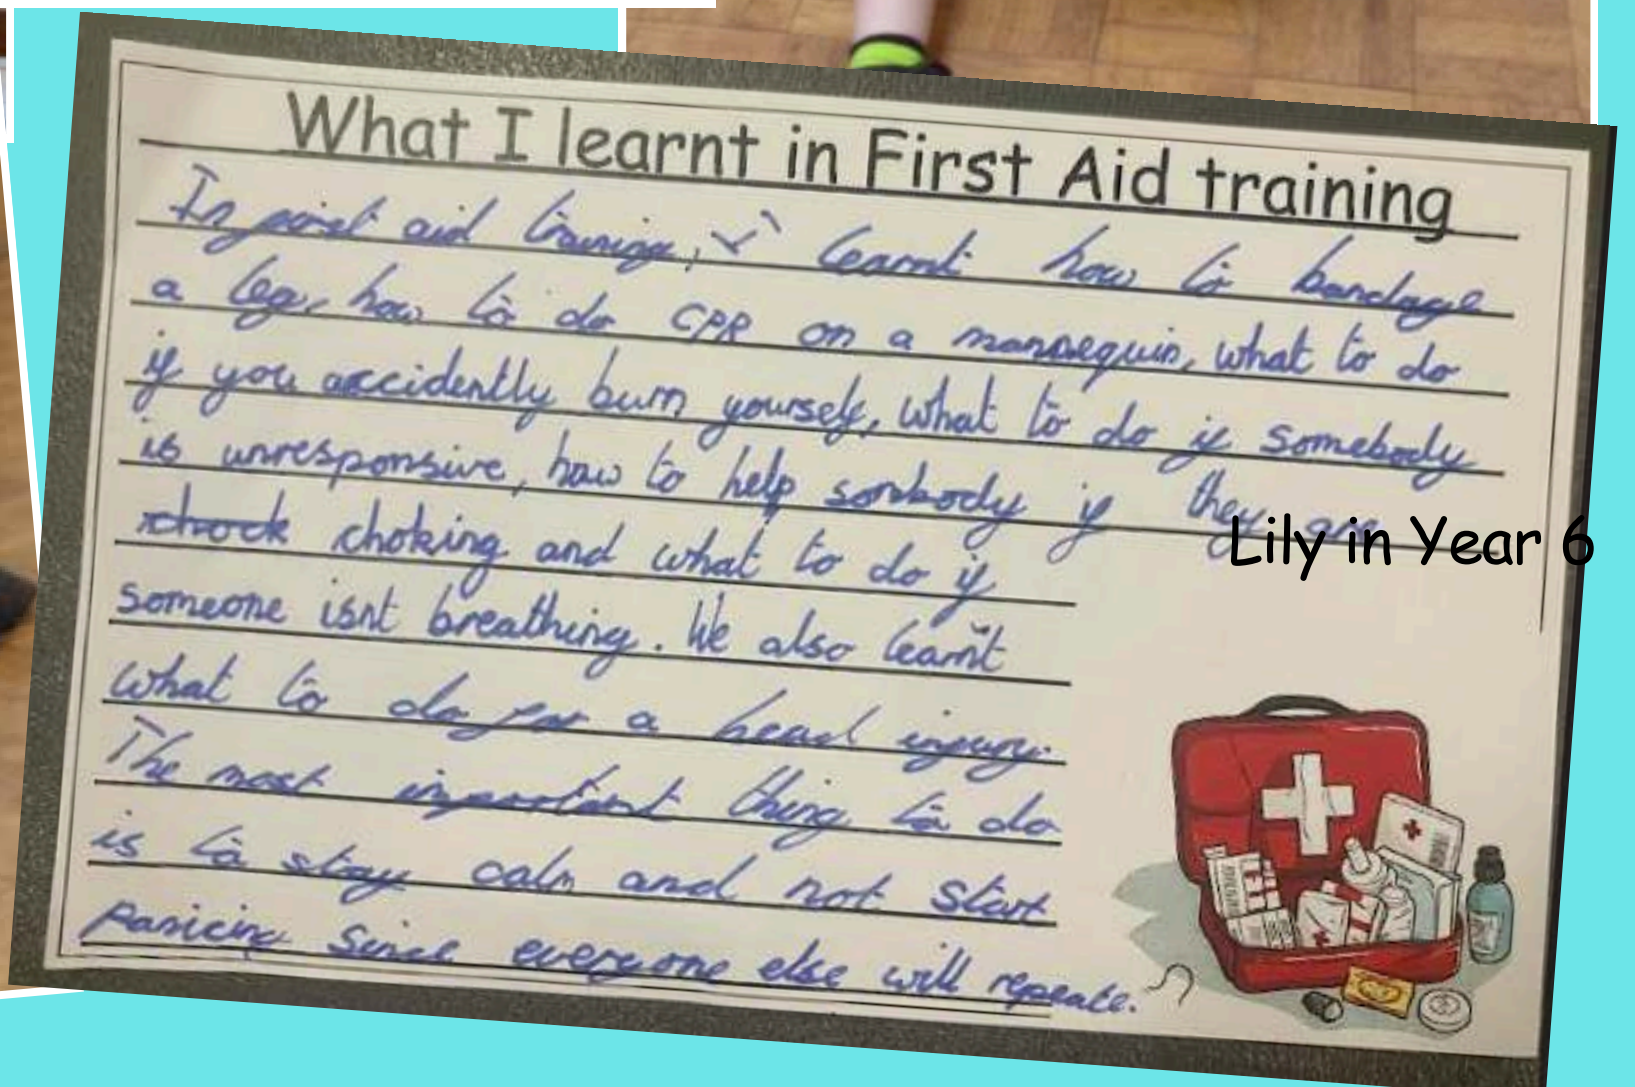 What I learnt in First Aid training
In first aid training, I learnt how to bandage
a leg, how to do CPR on a mannequin, what to do
if you accidently burn yourself, what to do if somebody
is unresponsive, how to help sombody if they are
choking and what to do if
someone isnt breathing. We also learnt
what to do for a head injury.
The most important thing to do
is to stay calm and not start
panicing since everyone else will repeate.
Lily in Year 6